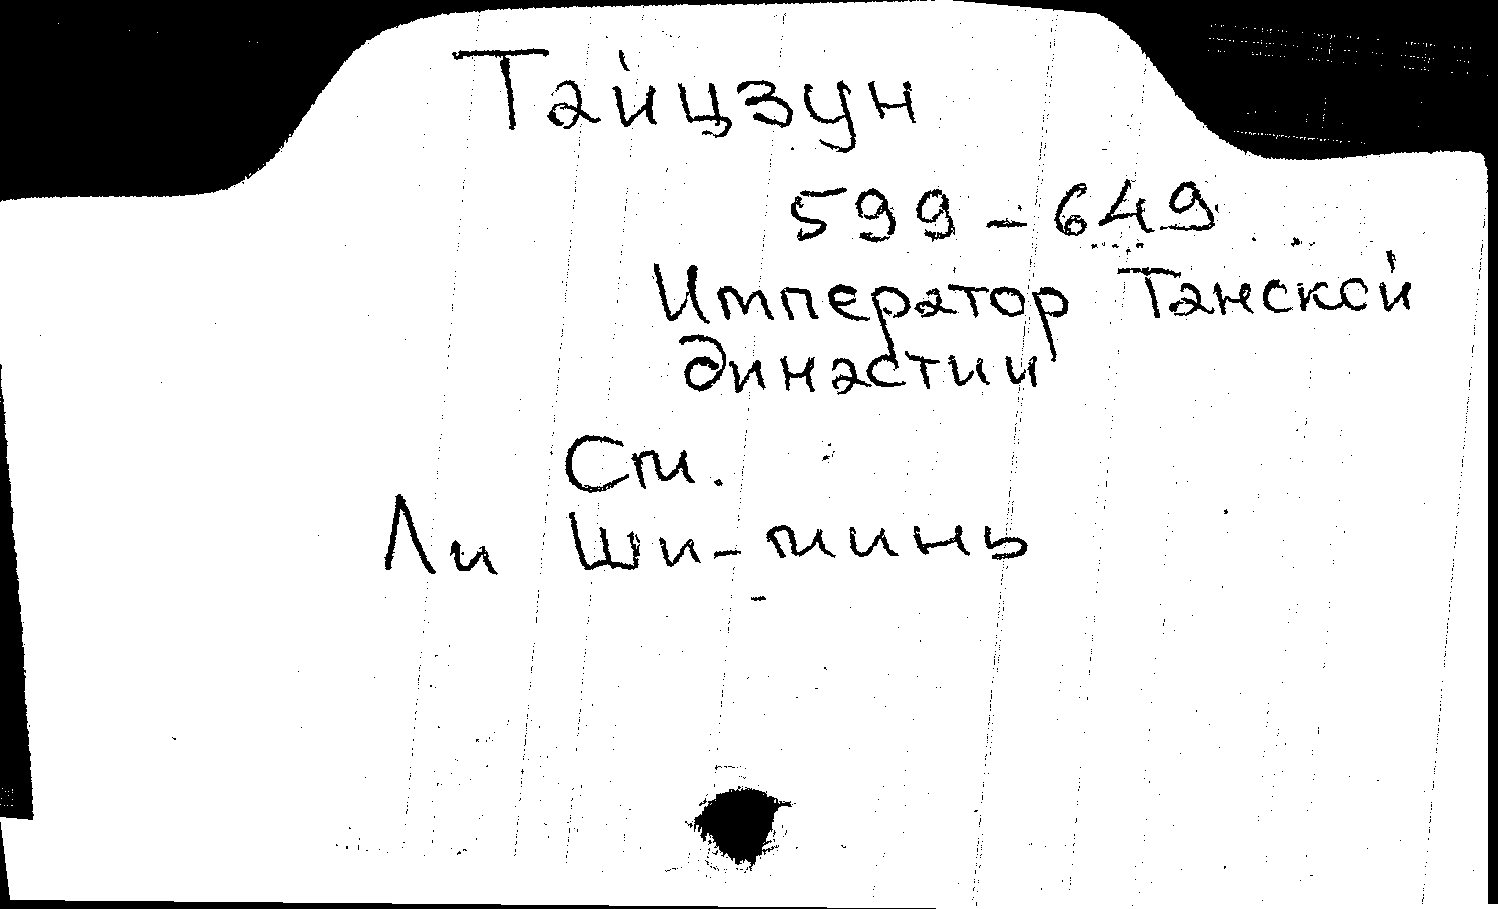 Тайцзун
599-649
Император Танской
династии
См.
Ли Ши-минь